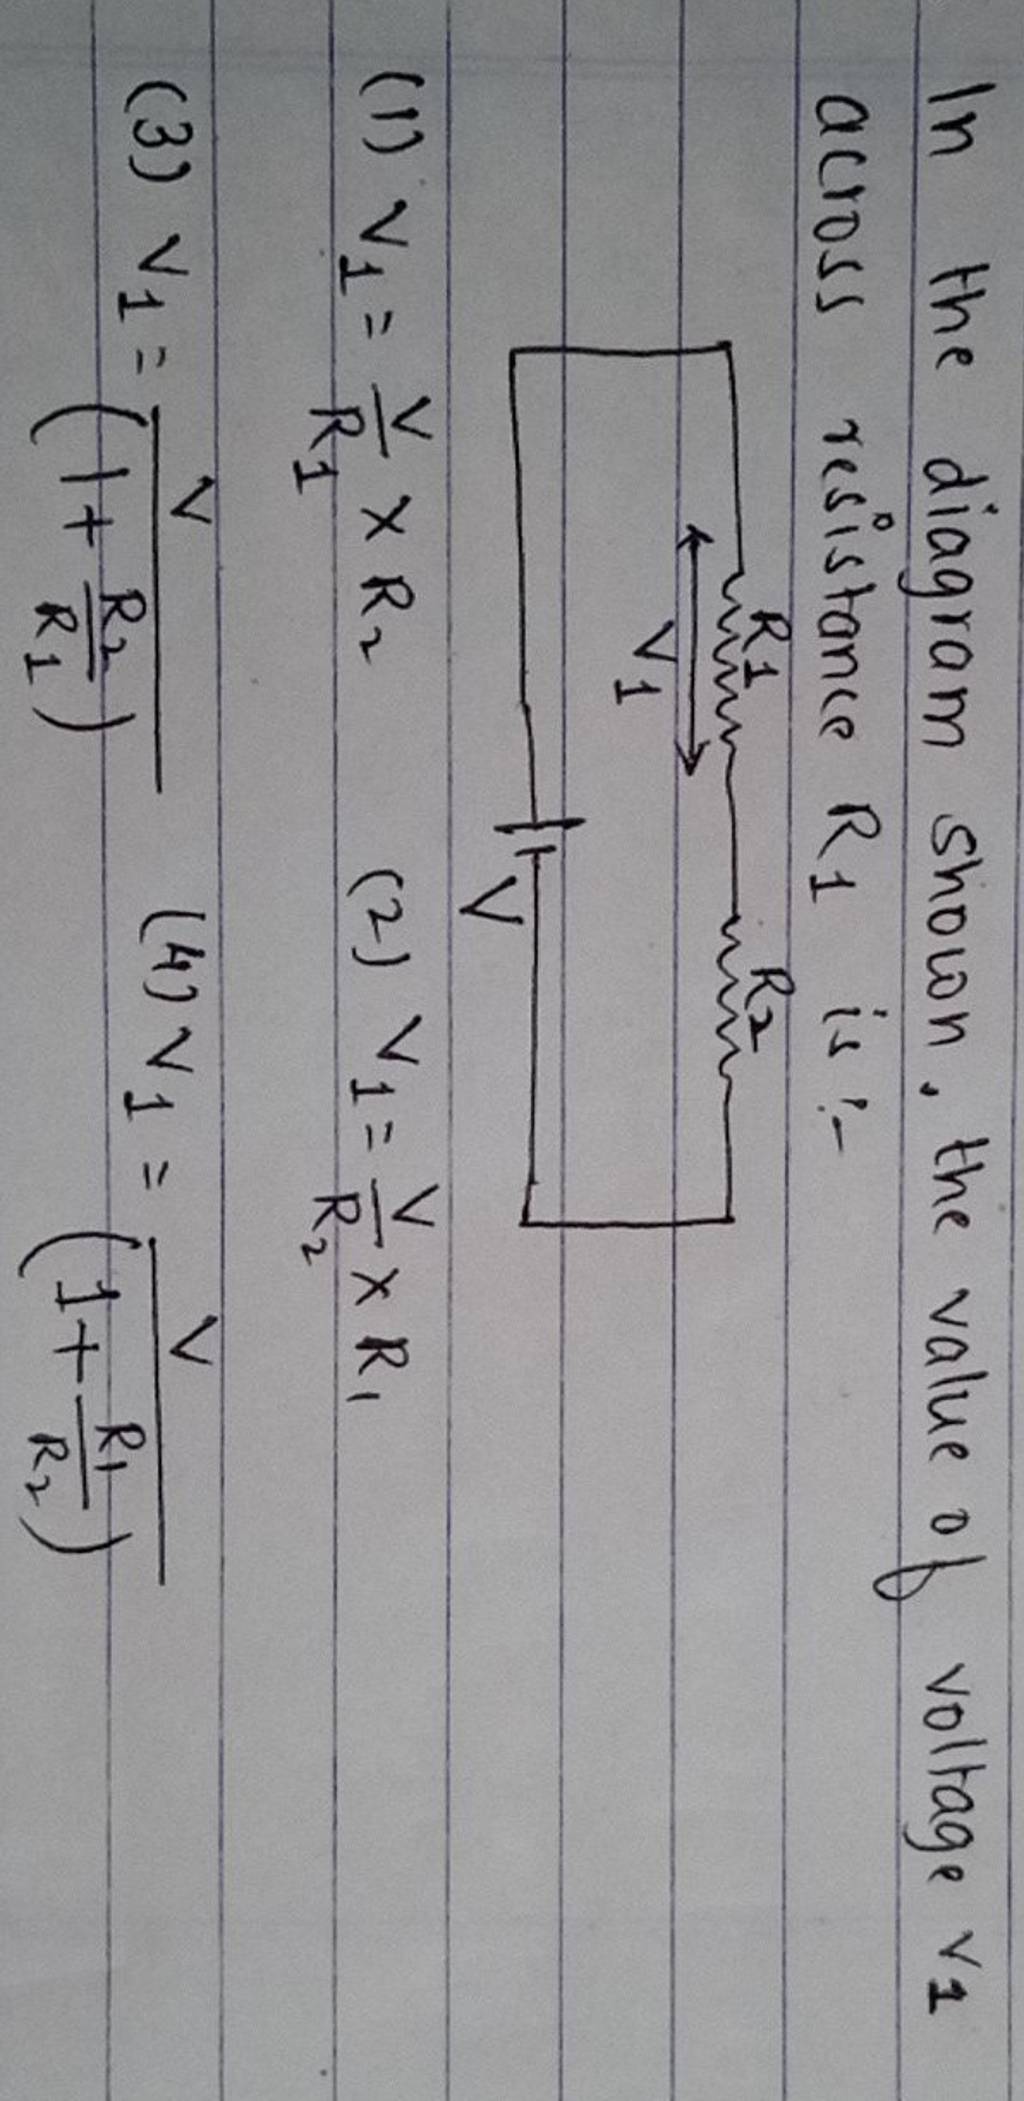 In the diagram shown, the value of voltage V1
across resistance R1 is :-
R1 R2
V1
V
(1) V1 = V/R1 × R2 (2) V1 = V/R2 × R1
(3) V1 = V/(1+R2/R1) (4) V1 = V/(1+R1/R2)